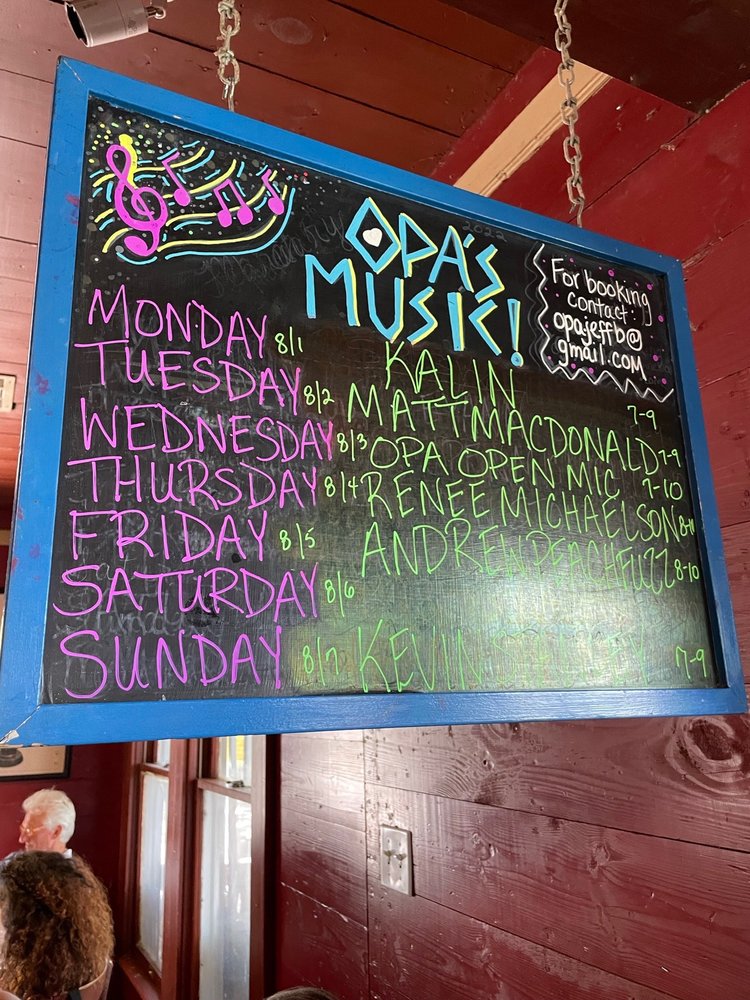 OPA'S
MUSIC!
For booking
contact:
opajeffb@
gmail.com
MONDAY 8/1 KALIN 7-9
TUESDAY 8/2 MATT MACDONALD 7-9
WEDNESDAY 8/3 OPA OPEN MIC 7-10
THURSDAY 8/4 RENEE MICHAELSON
FRIDAY 8/5 ANDREW PEACHFUZZ 8-10
SATURDAY 8/6
SUNDAY 8/7 KEVIN 7-9